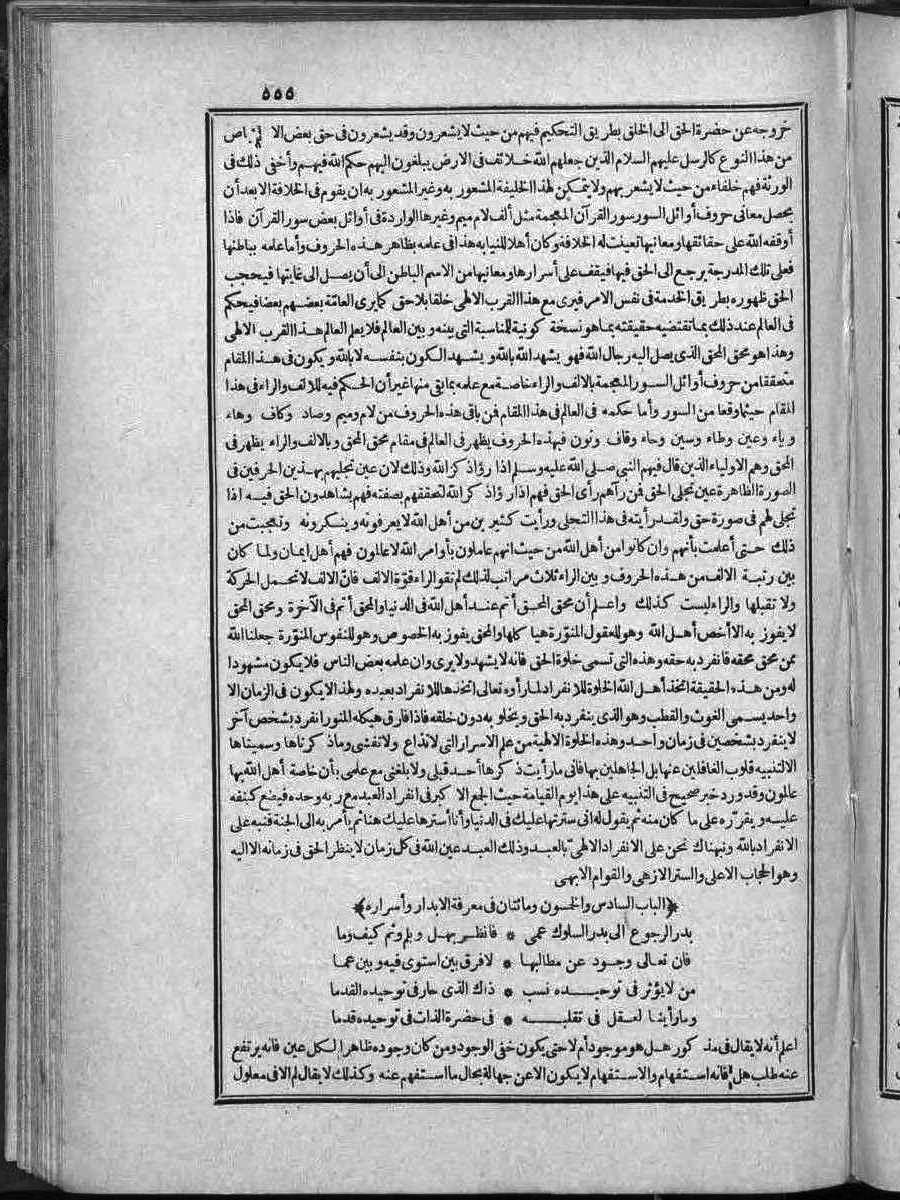 ٥٥٥
خروجه عن حضرة الحق الى الخلق بطريق التحكيم فيهم من حيث لا يشعرون وقد يشعرون فى حق بعض الا
من هذا النوع كالرسل عليهم السلام الذين جعلهم الله خلائف فى الارض يبلغون اليهم حكم الله فيهم وأخفى ذلك فى
الورثة فهم خلفاء من حيث لا يشعر بهم ولا يتمكن لهذا الخليفة المشعور به وغير المشعور به ان يقوم فى الخلافة الا بعد أن
يحصل معانى حروف أوائل السور سور القرآن المعجمة مثل ألف لام ميم وغيرها الواردة فى أوائل بعض سور القرآن فاذا
أوقفه الله على حقائقها ومعانيها تعينت له الخلافة وكان أهلا للنيابة هذا فى علمه بظاهر هذه الحروف وأما علمه بباطنها
فعلى تلك المدرجة يرجع الى الحق فيها فيقف على أسرارها ومعانيها من الاسم الباطن الى أن يصل الى غايتها فيحجب
الحق ظهوره بطريق الخدمة فى نفس الامر فيرى مع هذا القرب الالهى خلقا بلا حق كما يرى العامة بعضهم بعضا فيحكم
فى العالم عند ذلك بما تقتضيه حقيقته بما هو نسخة كونية للمناسبة التى بينه وبين العالم فلا يعلم العالم هذا القرب الالهى
وهذا هو محق المحق الذى يصل اليه رجال الله فهو يشهد الله بالله ويشهد الكون بنفسه لا بالله ويكون فى هذا المقام
متحققا من حروف أوائل السور المعجمة بالالف والراء خاصة مع علمه بما بقى منها غير أن الحكم فيه للالف والراء فى هذا
المقام حيثما وقعا من السور وأما حكمه فى العالم فى هذا المقام فمن باقى هذه الحروف من لام وميم وصاد وكاف وهاء
وياء وعين وطاء وسين وحاء وقاف ونون فبهذه الحروف يظهر فى العالم فى مقام محق المحق وبالالف والراء يظهر فى
المحق وهم الاولياء الذين قال فيهم النبى صلى الله عليه وسلم اذا رؤاذكر الله وذلك لان عين تجليهم بهذين الحرفين فى
الصورة الظاهرة عين تجلى الحق فمن رآهم رأى الحق فهم اذا رؤاذكر الله لتحققهم بصفته فهم يشاهدون الحق فيه اذا
تجلى لهم فى صورة حق ولقد رأيته فى هذا التجلى ورأيت كثيرين من أهل الله لا يعرفونه وينكرونه وتعجبت من
ذلك حتى أعلمت بأنهم وان كانوا من أهل الله من حيث انهم عاملون بأوامر الله لا عالمون فهم أهل ايمان ولما كان
بين رتبة الالف من هذه الحروف وبين الراء ثلاث مراتب لذلك لم تقو الراء قوة الالف فان الالف لا تحمل الحركة
ولا تقبلها والراء ليست كذلك واعلم أن محق المحق أتم عند أهل الله فى الدنيا والمحق أتم فى الآخرة ومحق المحق
لا يفوز به الا أخص أهل الله وهو للعقول المنورة هياكلها والمحق يفوز به الخصوص وهو للنفوس المنورة جعلنا الله
ممن محق محقه فانفرد به حقه وهذه التى تسمى خلوة الحق فانه لا يشهد ولا يرى وان علمه بعض الناس فلا يكون مشهودا
له ومن هذه الحقيقة اتخذ أهل الله الخلوة للانفراد لما رأوه تعالى اتخذها للانفراد بعبده ولهذا لا يكون فى الزمان الا
واحد يسمى الغوث والقطب وهو الذى ينفرد به الحق ويخلو به دون خلقه فاذا فارق هيكله المنور انفرد بشخص آخر
لا ينفرد بشخصين فى زمان واحد وهذه الخلوة الالهية من علم الاسرار التى لا تذاع ولا تفشى وما ذكرناها وسميناها
الا لتنبيه قلوب الغافلين عنها بل الجاهلين بها فانى ما رأيت ذكرها أحد قبلى ولا بلغنى مع علمى بأن خاصة أهل الله بها
عالمون وقد ورد خبر صحيح فى التنبيه على هذا يوم القيامة حيث الجمع الاكبر فى انفراد العبد مع ربه وحده فيضع كنفه
عليه ويقرره على ما كان منه ثم يقول له انى سترتها عليك فى الدنيا وأنا أسترها عليك هنا ثم يأمر به الى الجنة فنبه على
الانفراد بالله ونبهناك نحن على الانفراد الالهى بالعبد وذلك العبد عين الله فى كل زمان لا ينظر الحق فى زمانه الا اليه
وهو الحجاب الاعلى والستر الازهى والقوام الابهى
﴿الباب السادس والخمسون ومائتان فى معرفة الابدار وأسراره﴾
بدر الرجوع الى بدر السلوك عمى * فانظر بهل وبلم وثم كيف وما
فان تعالى وجود عن مطالبها * لا فرق بين استوى فيه وبين عما
من لا يؤثر فى توحيده نسب * ذاك الذى حار فى توحيده القدما
وما رأينا لعقل فى تقلبه * فى حضرة الذات فى توحيده قدما
اعلم أنه لا يقال فى مذكور هل هو موجود أم لا حتى يكون خفى الوجود ومن كان وجوده ظاهرا لكل عين فانه يرتفع
عنه طلب هل فانه استفهام والاستفهام لا يكون الا عن جهالة بحال ما استفهم عنه وكذلك لا يقال لم الا فى معلول